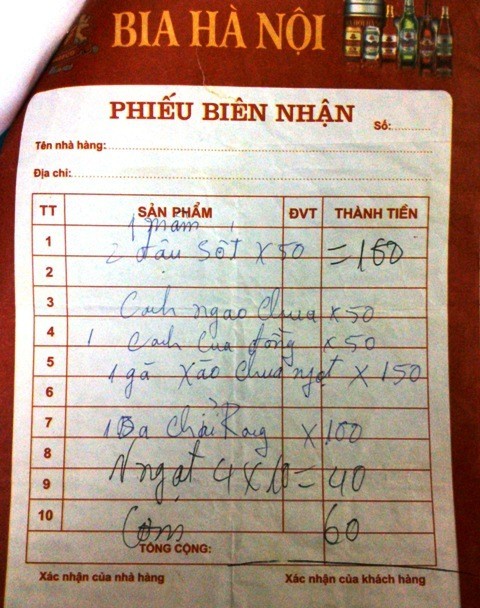 BIA HÀ NỘI
PHIẾU BIÊN NHẬN
Số:
Tên nhà hàng:
Địa chỉ:
TT SẢN PHẨM ĐVT THÀNH TIỀN
1 mắm
1
2 đâu sốt x 50 = 150
2
3
Canh ngao chua x 50
4
1 canh cua đồng x 50
5
1 gà xào chua ngọt x 150
6
7
1 Ba chỉ Rang x 100
8
N ngọt 4 x 10 = 40
9
10
Cơm 60
TỔNG CỘNG:
Xác nhận của nhà hàng Xác nhận của khách hàng